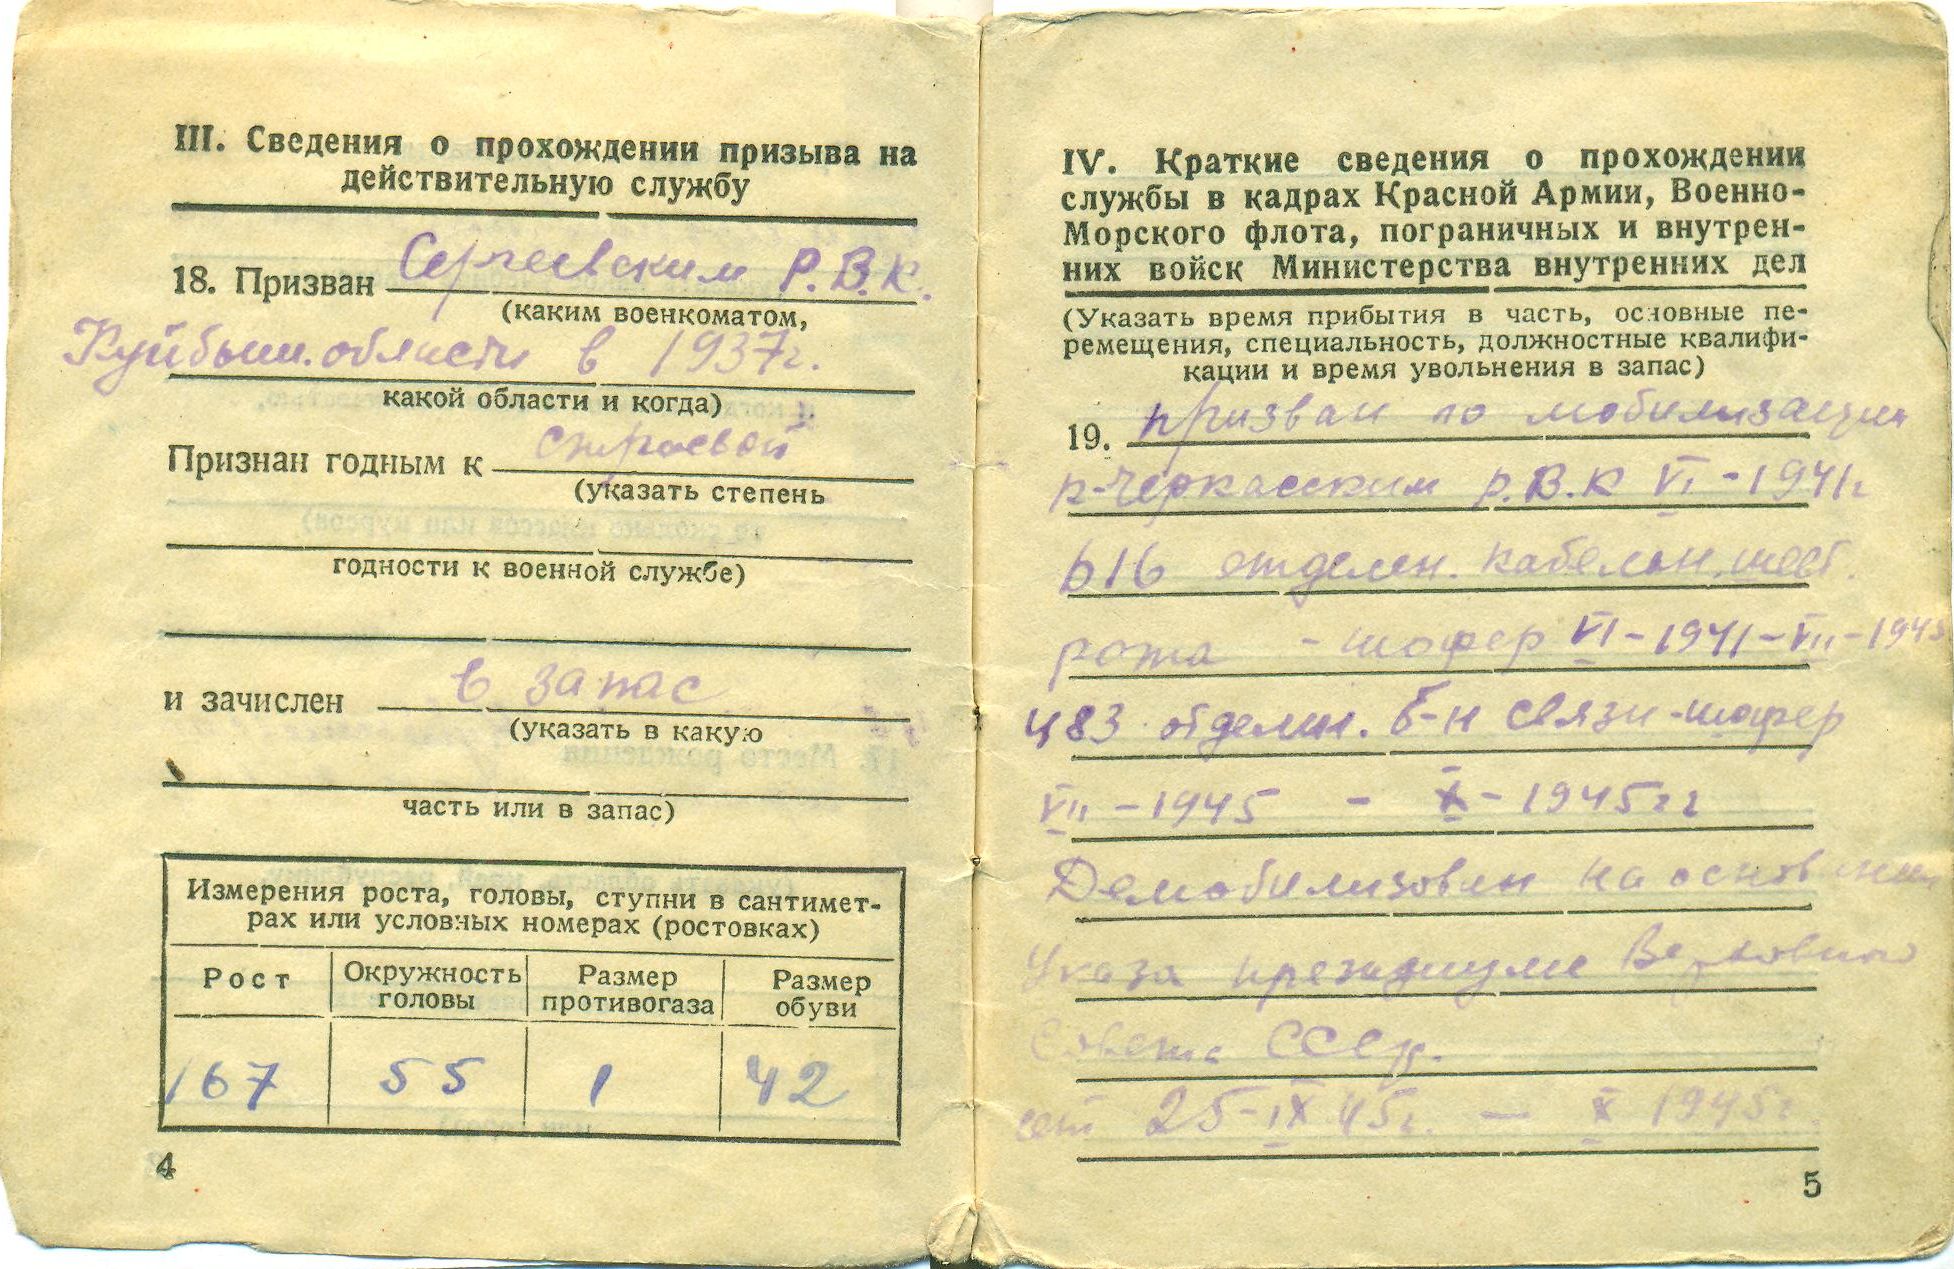 III. Сведения о прохождении призыва на
действительную службу
18. Призван Сергиевским Р.В.К.
(каким военкоматом,
Куйбыш. области в 1937г.
какой области и когда)
Признан годным к строевой
(указать степень
годности к военной службе)
и зачислен в запас
(указать в какую
часть или в запас)
Измерения роста, головы, ступни в сантимет-
рах или условных номерах (ростовках)
Рост Окружность головы Размер противогаза Размер обуви
167 55 1 42
4
IV. Краткие сведения о прохождении
службы в кадрах Красной Армии, Военно-
Морского флота, пограничных и внутрен-
них войск Министерства внутренних дел
(Указать время прибытия в часть, основные пе-
ремещения, специальность, должностные квалифи-
кации и время увольнения в запас)
19. призван по мобилизации
к-Черкасским р.В.К VI-1941г
616 отделен. кабельн. шест.
рота - шофер VI-1941-VII-1945
483 отделен. б-н связи-шофер
VII-1945 - X-1945гг
Демобилизован на основании
Указа президиума Верховного
Совета СССР.
от 25-IX 45г. — X 1945г.
5